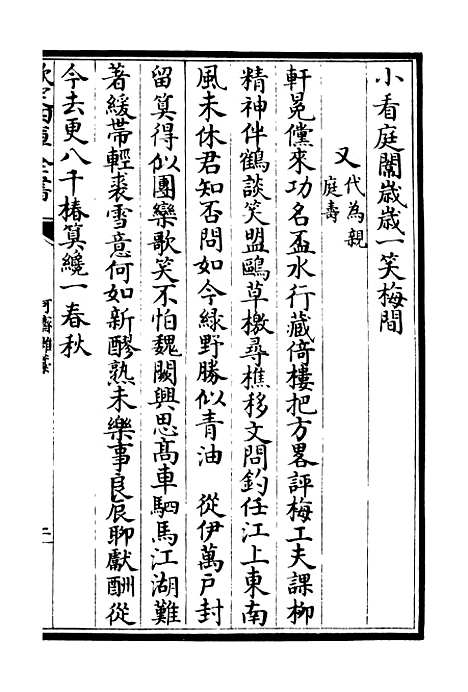 小看庭闈歳歳一笑梅間
又代為親庭壽
軒冕儻來功名盃水行藏倚樓把方畧評梅工夫課柳
精神伴鶴談笑盟鷗草檄尋樵移文問釣任江上東南
風未休君知否問如今緑野勝似青油　從伊萬户封
留算得似團欒歌笑不怕魏闕興思髙車駟馬江湖難
著緩帶輕裘雪意何如新醪熟未樂事良辰聊獻酬從
今去更八千椿算纔一春秋
欽定四庫全書
可齋雜藁